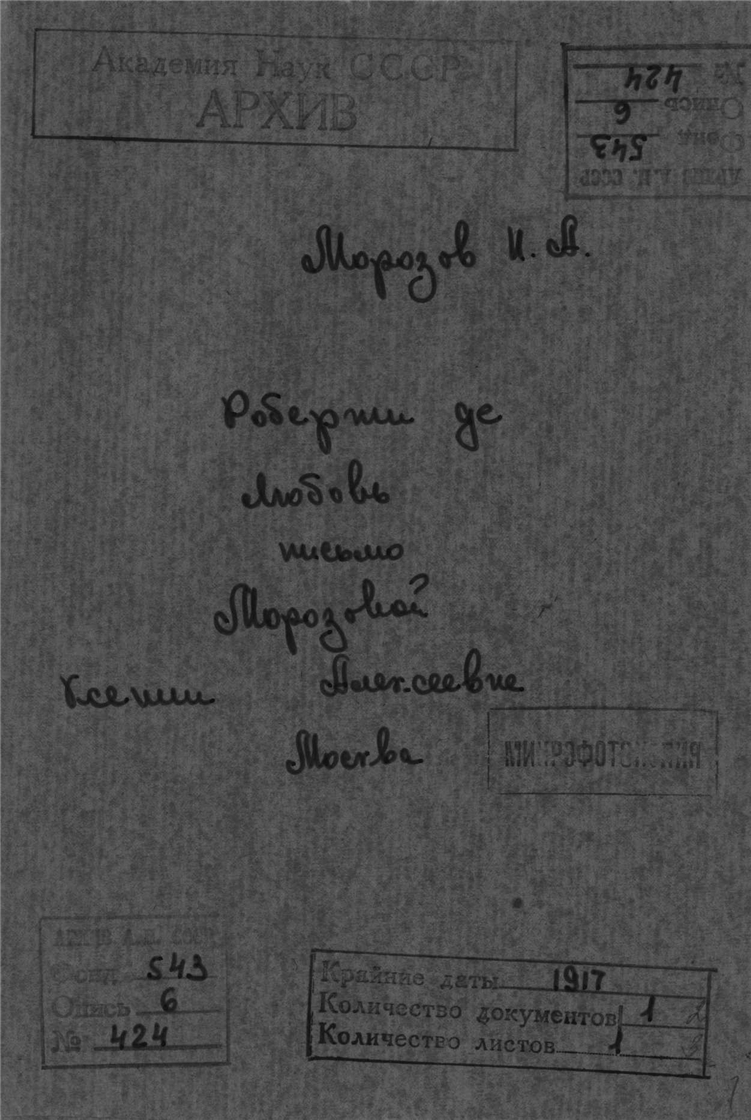 Академия Наук СССР
АРХИВ
№ 424
Опись 6
Фонд 543
АРХИВ А.Н. СССР
Морозов Н. А.
Роберти де
Любовь
письмо
Морозовой
Ксении Алексеевне
Москва
МИКРОФОТОКОПИЯ
АРХИВ А.Н. СССР
Фонд 543
Опись 6
№ 424
Крайние даты 1917
Количество документов 1
Количество листов 1